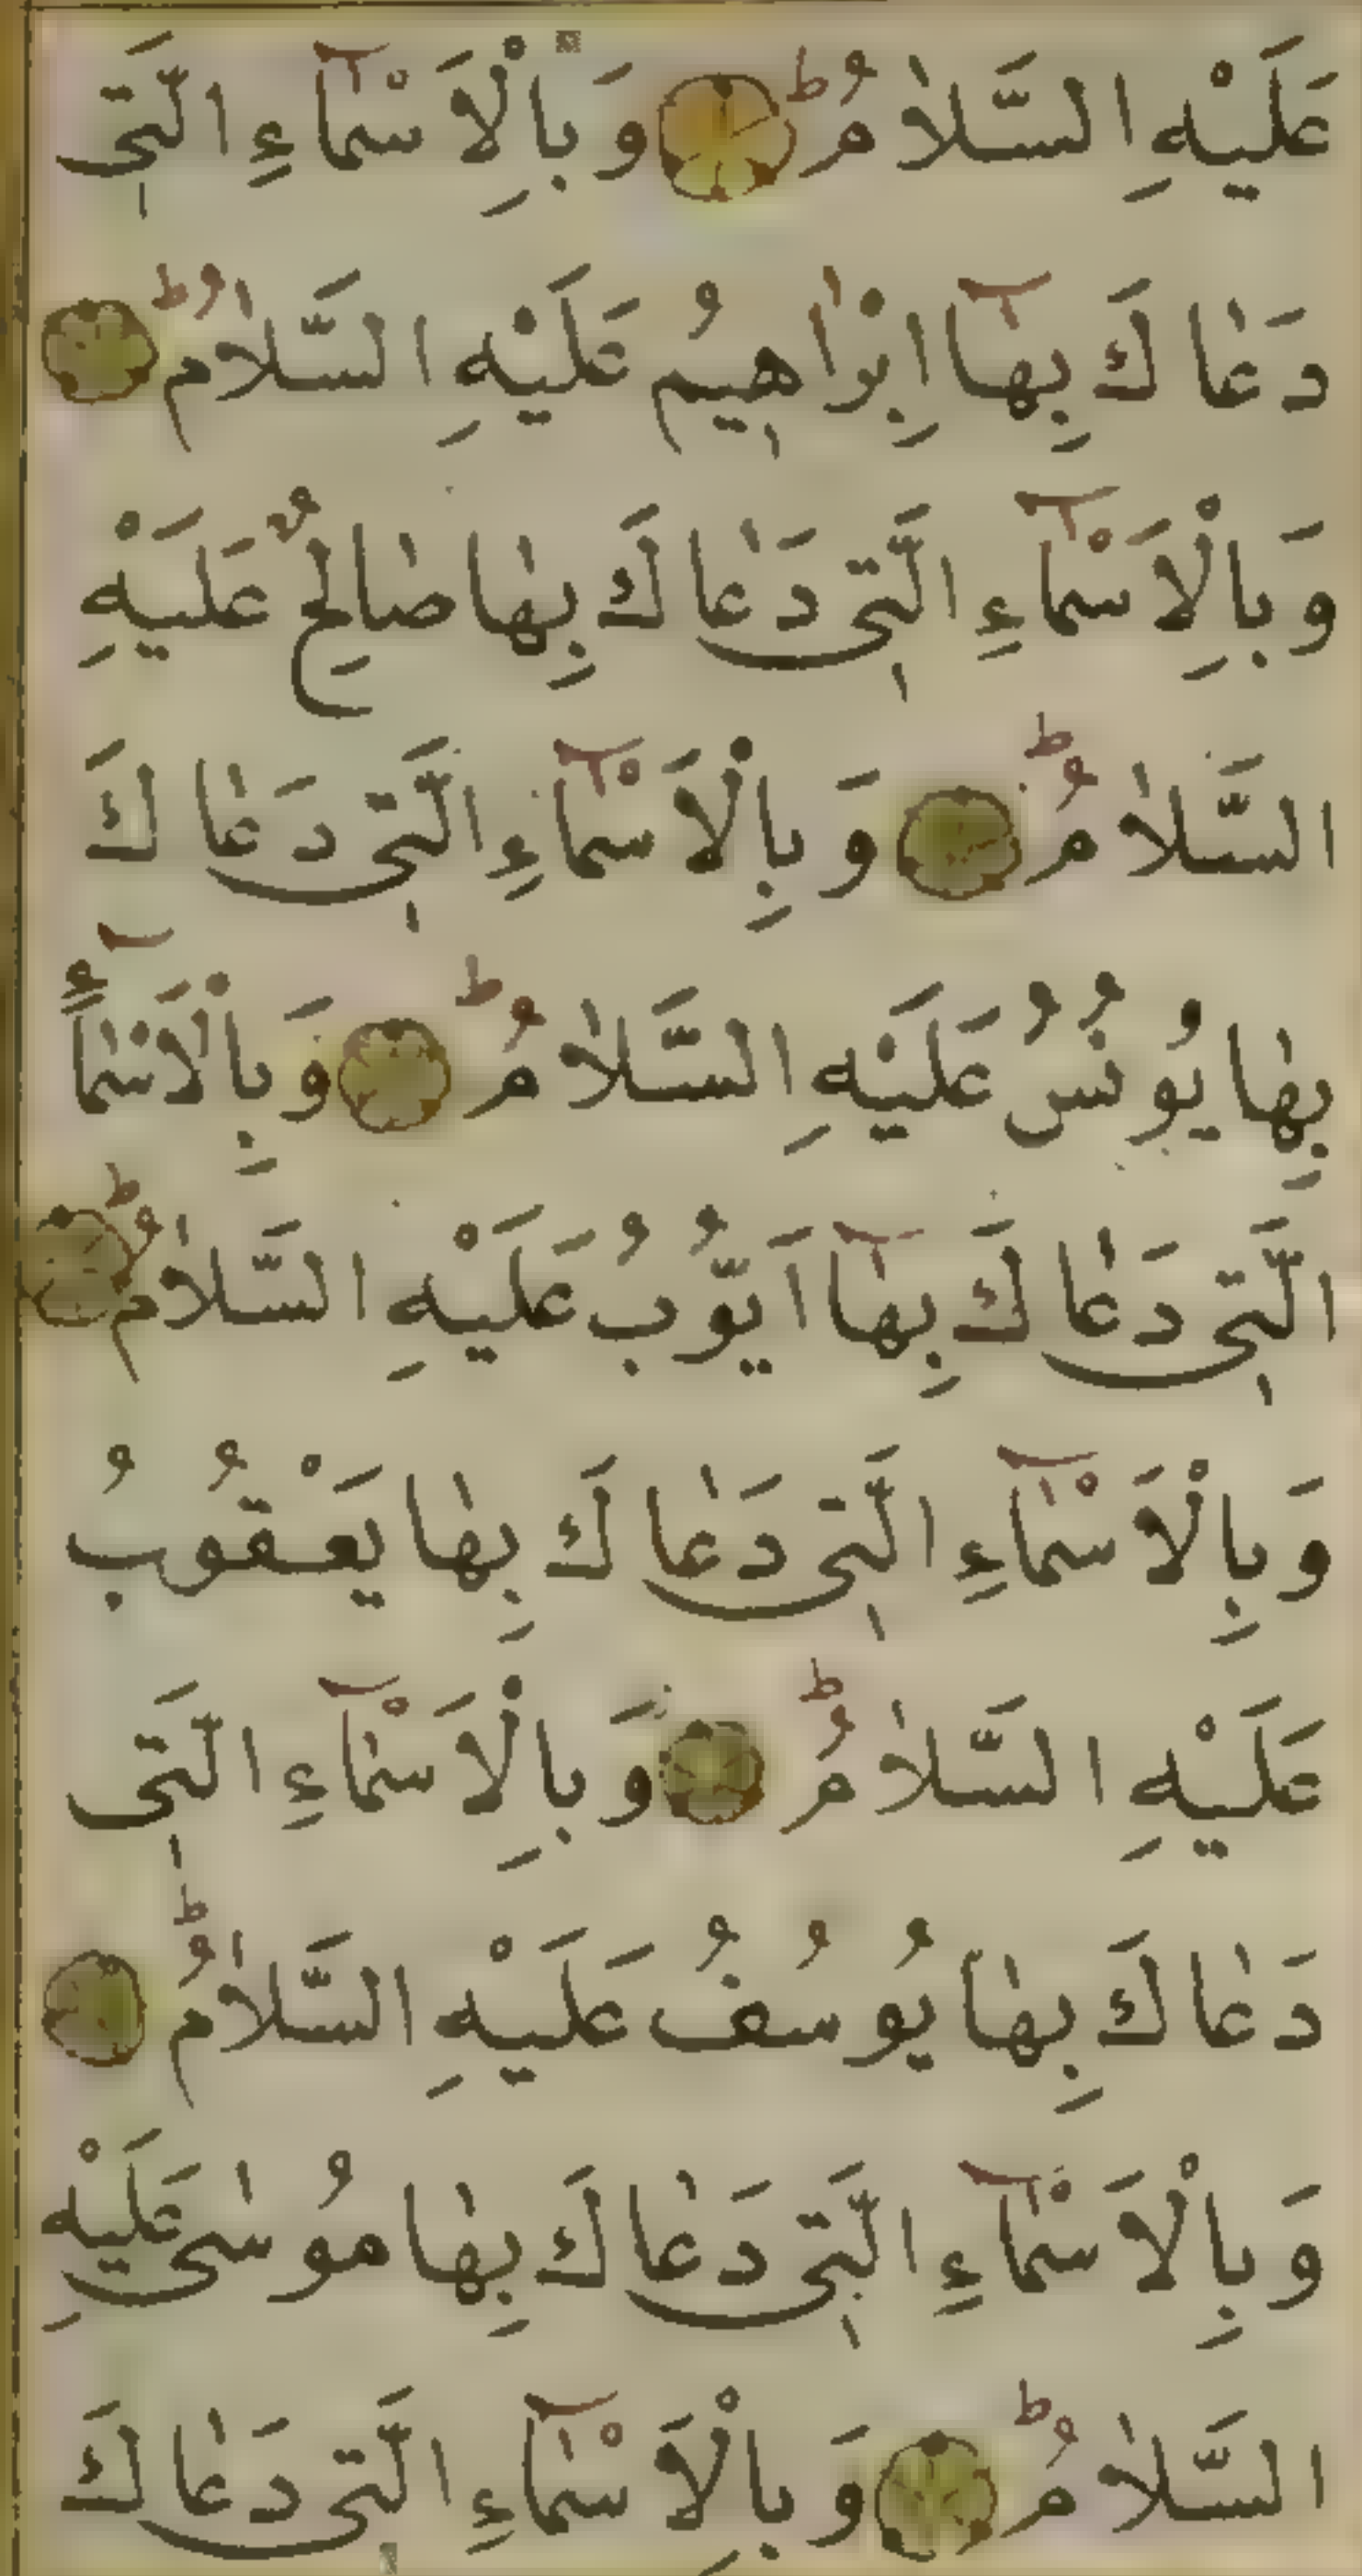 عَلَيْهِ السَّلَامُ ط وَبِالْاَسْمَآءِ الَّتِي
دَعَاكَ بِهَآ اِبْرَاهِيمُ عَلَيْهِ السَّلَامُ ط
وَبِالْاَسْمَآءِ الَّتِي دَعَاكَ بِهَا صَالِحٌ عَلَيْهِ
السَّلَامُ ط وَبِالْاَسْمَآءِ الَّتِي دَعَاكَ
بِهَا يُونُسُ عَلَيْهِ السَّلَامُ ط وَبِالْاَسْمَآءِ
الَّتِي دَعَاكَ بِهَآ اَيُّوبُ عَلَيْهِ السَّلَامُ ط
وَبِالْاَسْمَآءِ الَّتِي دَعَاكَ بِهَا يَعْقُوبُ
عَلَيْهِ السَّلَامُ ط وَبِالْاَسْمَآءِ الَّتِي
دَعَاكَ بِهَا يُوسُفُ عَلَيْهِ السَّلَامُ ط
وَبِالْاَسْمَآءِ الَّتِي دَعَاكَ بِهَا مُوسٰى عَلَيْهِ
السَّلَامُ ط وَبِالْاَسْمَآءِ الَّتِي دَعَاكَ